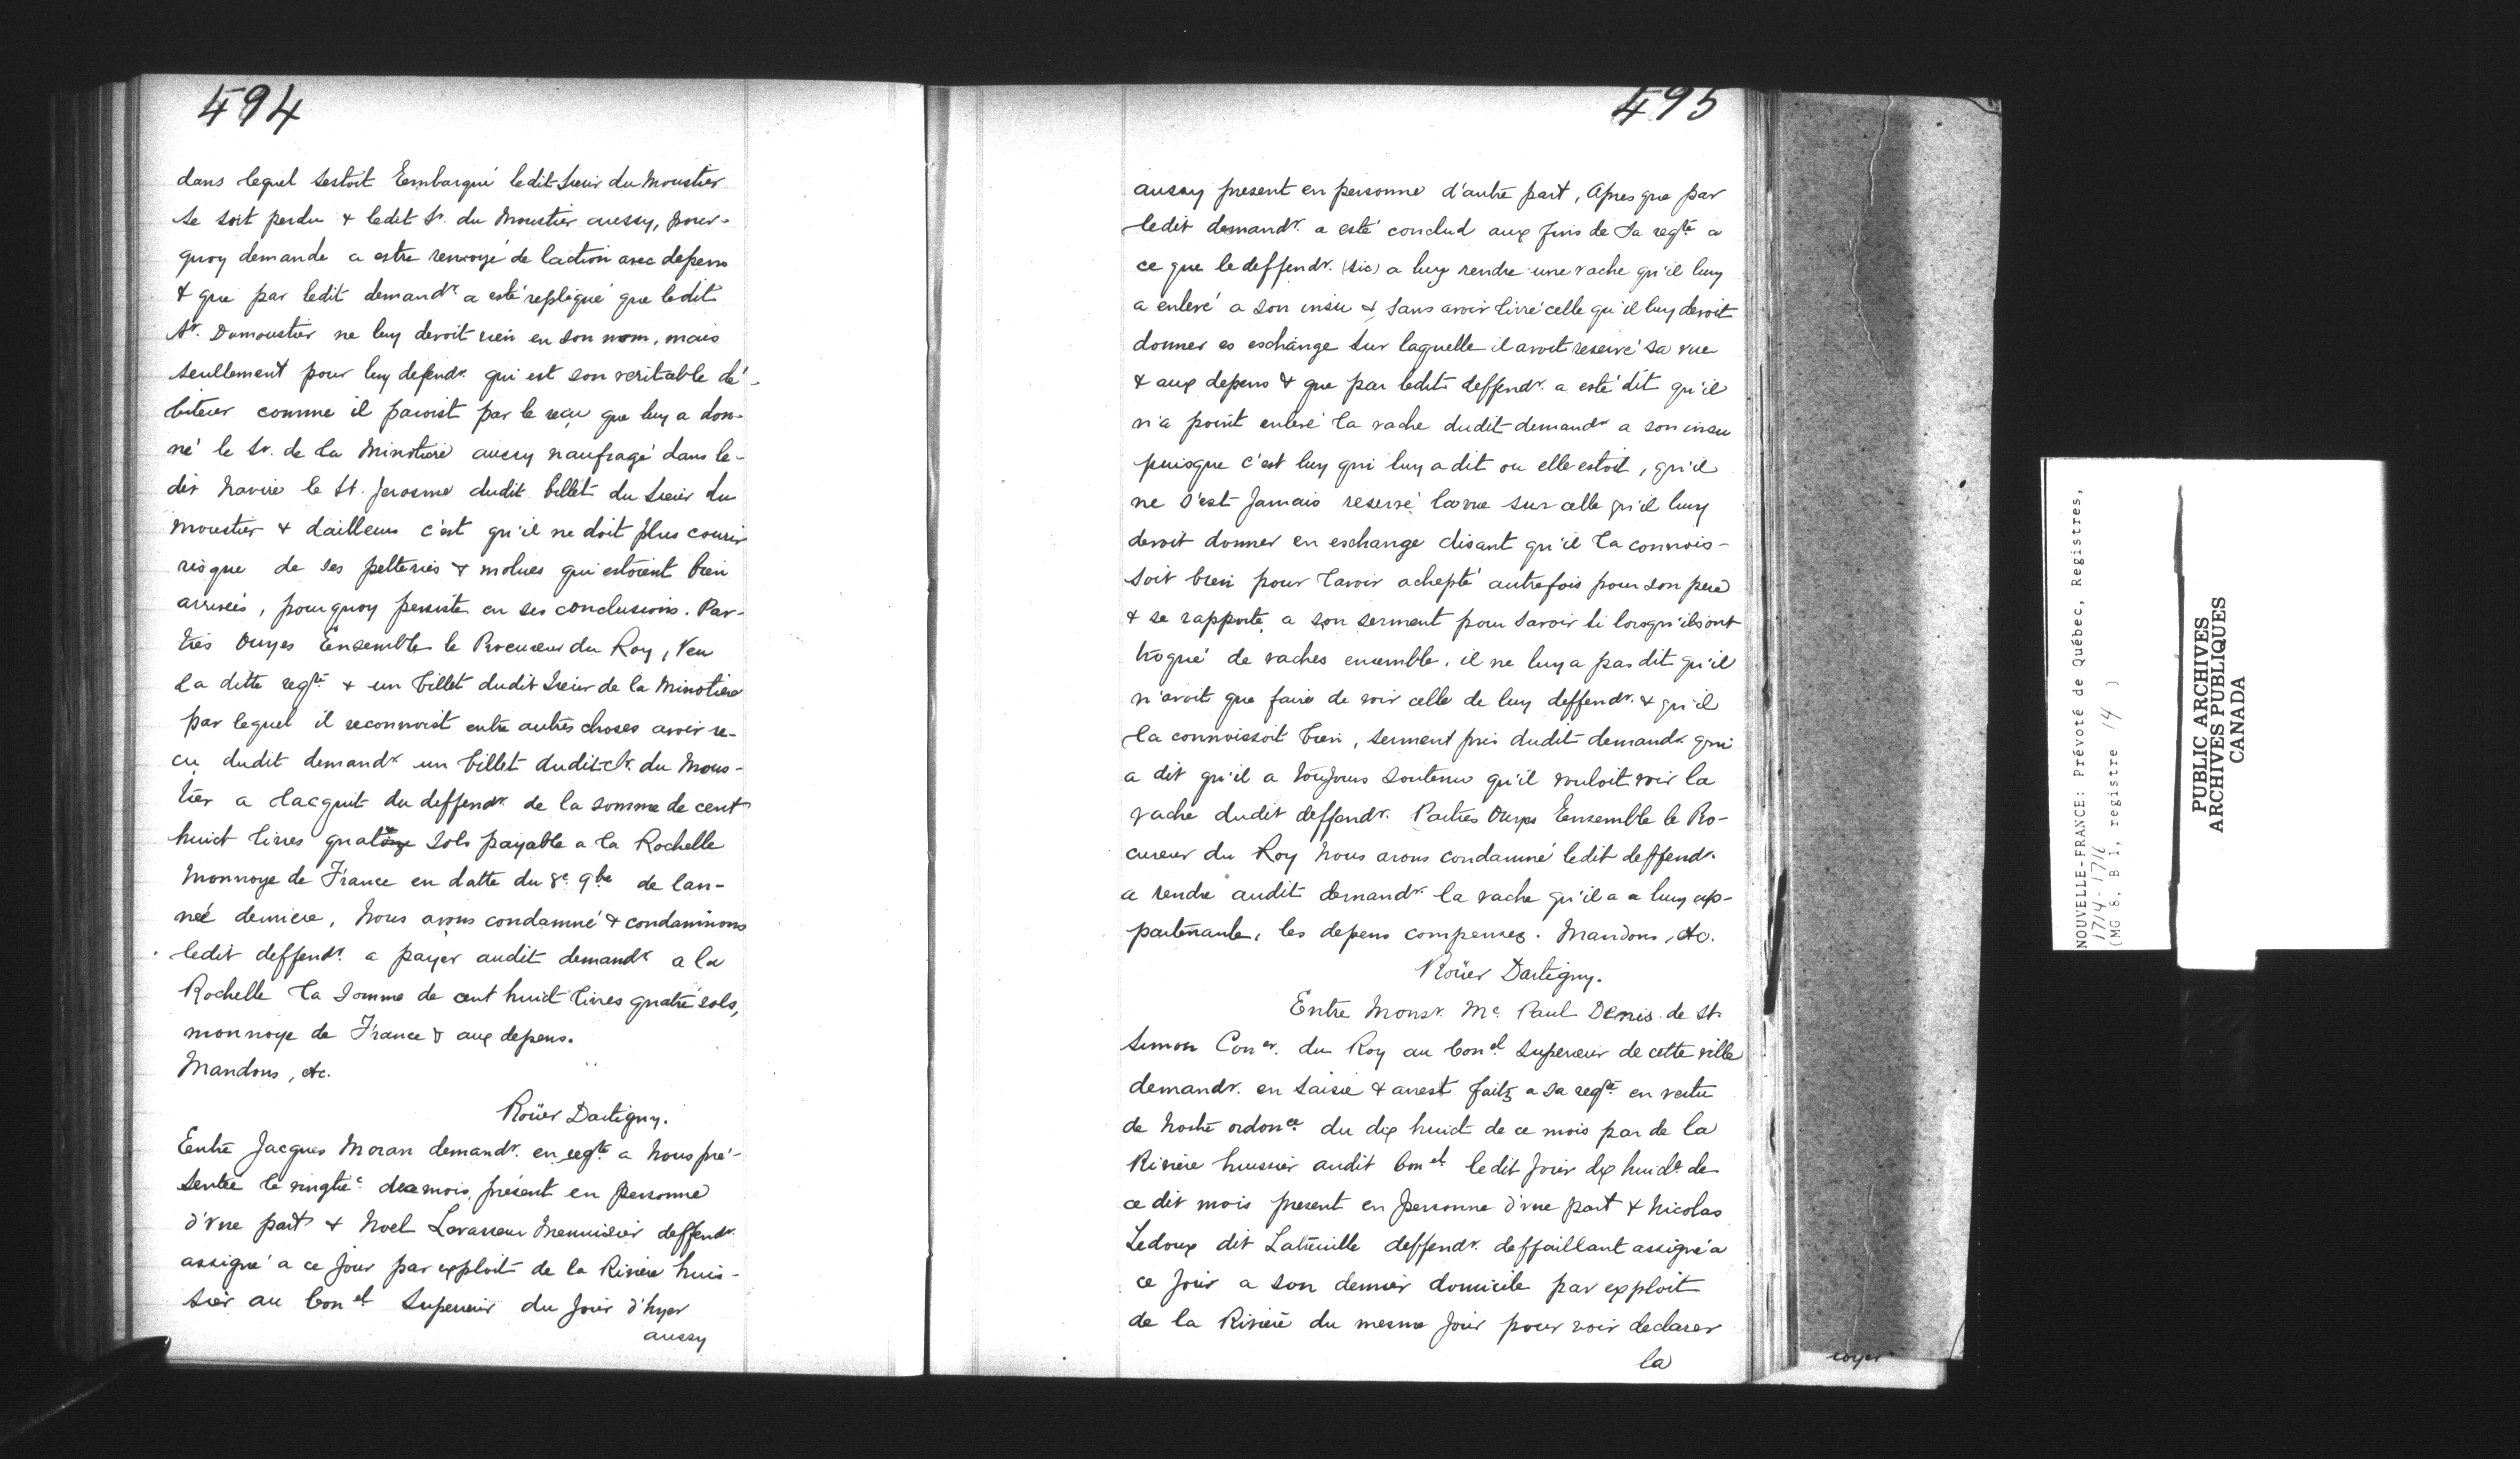 494
dans lequel sestoit Eembarqué ledit Sieur du Moustier
se soit perdu & ledit Sr. du Moustier aussy, pour-
quoy demande a estre renvoyé de laction avec depens
& que par ledit demandr. a esté repliqué que ledit
Sr. Dumoustier ne luy devoit rien en son nom, mais
seullement pour luy defendr. qui est son veritable dé-
biteur comme il paroist par le reçu que luy a don-
né le Sr. de la Minotiere aussy naufragé dans le-
dit Navire le St. Jerosme dudit billet du Sieur du
Moustier & dailleurs c'est qu'il ne doit plus courir
risque de ses pelteries & molues qui estoient bien
arrivées, pourquoy persiste en ses conclusions. Par-
ties Ouyes Ensemble le Procureur du Roy, Veu
La ditte reqte. & un billet dudit Sieur de la Minotiere
par lequel il reconnoist entre autres choses avoir re-
cu dudit demandr. un billet dudit Sr. du Mous-
tier a lacquit du deffendr. de la somme de cent
huict livres quatre sols payable a la Rochelle
Monnoye de France en datte du 8e 9bre de lan-
née derniere, Nous avons condamné & condamnons
ledit deffendr. a payer audit demandr. a la
Rochelle la somme de cent huict livres quatre sols,
monnoye de France & aux depens.
Mandons, etc.
Roüer Dartigny.
Entre Jacques Moran demandr. en reqte. a Nous pré-
sentée le vingtie. de ce mois, présent en personne
d'vne part & Noel Levasseur Menuisier deffendr.
assigné a ce Jour par exploit de la Riviere huis-
sier au Conel. Superieur du Jour d'hyer
aussy
495
aussy present en personne d'autre part, Apres que par
ledit demandr. a esté conclud aux fins de Sa reqte. a
ce que le deffendr. (sic) a luy rendre une vache qu'il luy
a enlevé a son insu & sans avoir livré celle qu'il luy devoit
donner es eschange sur laquelle il avoit reservé sa vue
& aux depens & que par ledit deffendr. a esté dit qu'il
n'a point enlevé la vache dudit demandr. a son insu
puisque c'est luy qui luy a dit ou elle estoit, qu'il
ne s'est Jamais reservé la vue sur celle qu'il luy
devoit donner en eschange disant qu'il la connois-
soit bien pour l'avoir achepté autrefois pour son pere
& se rapporte a son serment pour savoir si lorsqu'ils ont
troqué de vaches ensemble, il ne luy a pas dit qu'il
n'avoit que faire de voir celle de luy deffendr. & qu'il
la connoissoit bien, serment pris dudit demandr. qui
a dit qu'il a toujours soutenu qu'il vouloit voir la
vache dudit deffendr. Parties Ouyes Ensemble le Pro-
cureur du Roy Nous avons condamné ledit deffendr.
a rendre audit demandr. la vache qu'il a a luy ap-
partenante, les depens compensez. Mandons, etc.
Roüer Dartigny.
Entre Monsr. Me. Paul Denis de St.
Simon Coner. du Roy au Conel. Superieur de cette ville
demandr. en saisie & arrest faitz a sa reqte. en vertu
de Nostre ordonce. du dix huict de ce mois par de la
Riviere huissier audit Conel. ledit Jour dix huict. de
ce dit mois present en personne d'vne part & Nicolas
Ledoux dit Latreille deffendr. deffaillant assigné a
ce Jour a son dernier domicile par exploit
de la Riviere du mesme Jour pour voir declarer
la
NOUVELLE-FRANCE: Prévoté de Québec, Registres,
1714-1716
(MG 8, B 1, registre 14 )
PUBLIC ARCHIVES
ARCHIVES PUBLIQUES
CANADA